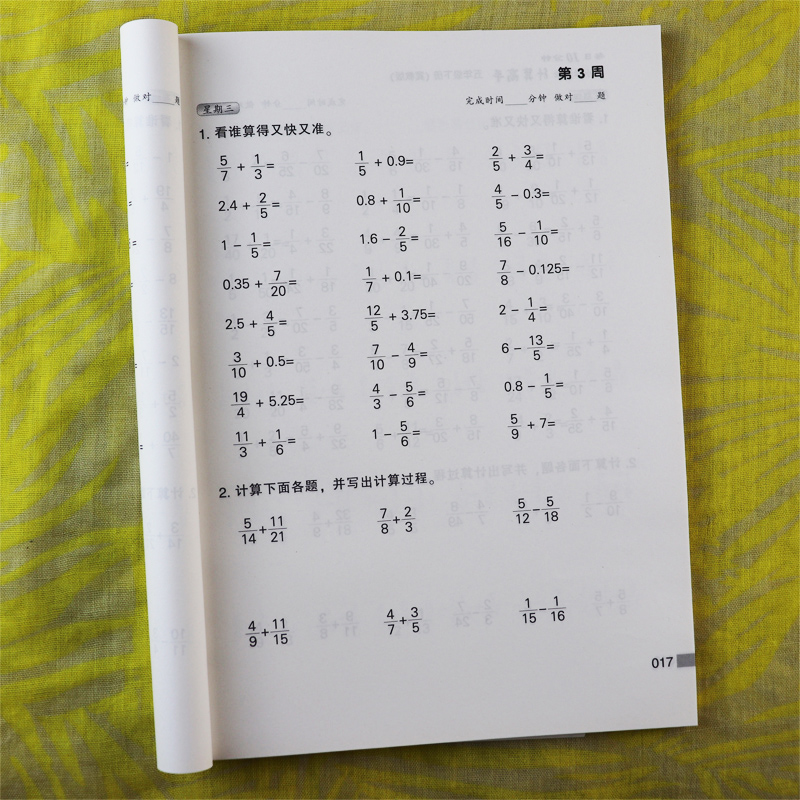 第 3 周
做对____题
星期三 完成时间____分钟 做对____题
1. 看谁算得又快又准。
5/7 + 1/3= 1/5 + 0.9= 2/5 + 3/4=
2.4 + 2/5= 0.8 + 1/10= 4/5 − 0.3=
1 − 1/5= 1.6 − 2/5= 5/16 − 1/10=
0.35 + 7/20= 1/7 + 0.1= 7/8 − 0.125=
2.5 + 4/5= 12/5 + 3.75= 2 − 1/4=
3/10 + 0.5= 7/10 − 4/9= 6 − 13/5=
19/4 + 5.25= 4/3 − 5/6= 0.8 − 1/5=
11/3 + 1/6= 1 − 5/6= 5/9 + 7=
2. 计算下面各题，并写出计算过程。
5/14+11/21 7/8+2/3 5/12−5/18
4/9+11/15 4/7+3/5 1/15−1/16
017